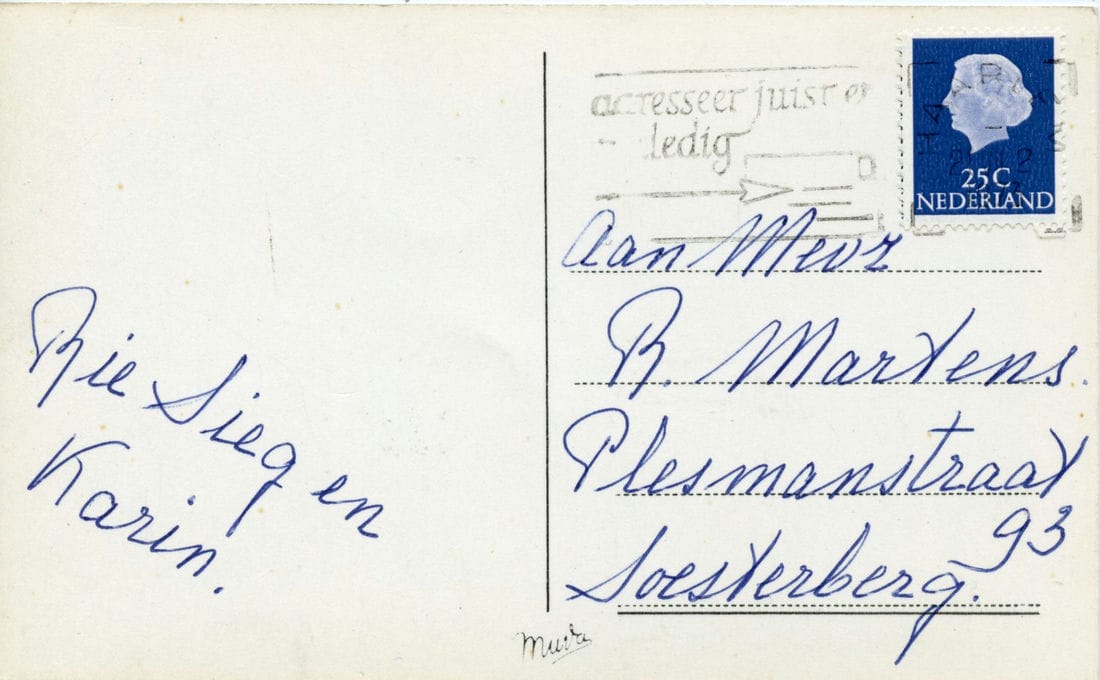 Rie Sieg en
Karin.
adresseer juist en
ledig
HAARLEM
25 C
NEDERLAND
Aan Mevr
R. Martens.
Plesmanstraat
93
Soesterberg.
Muva